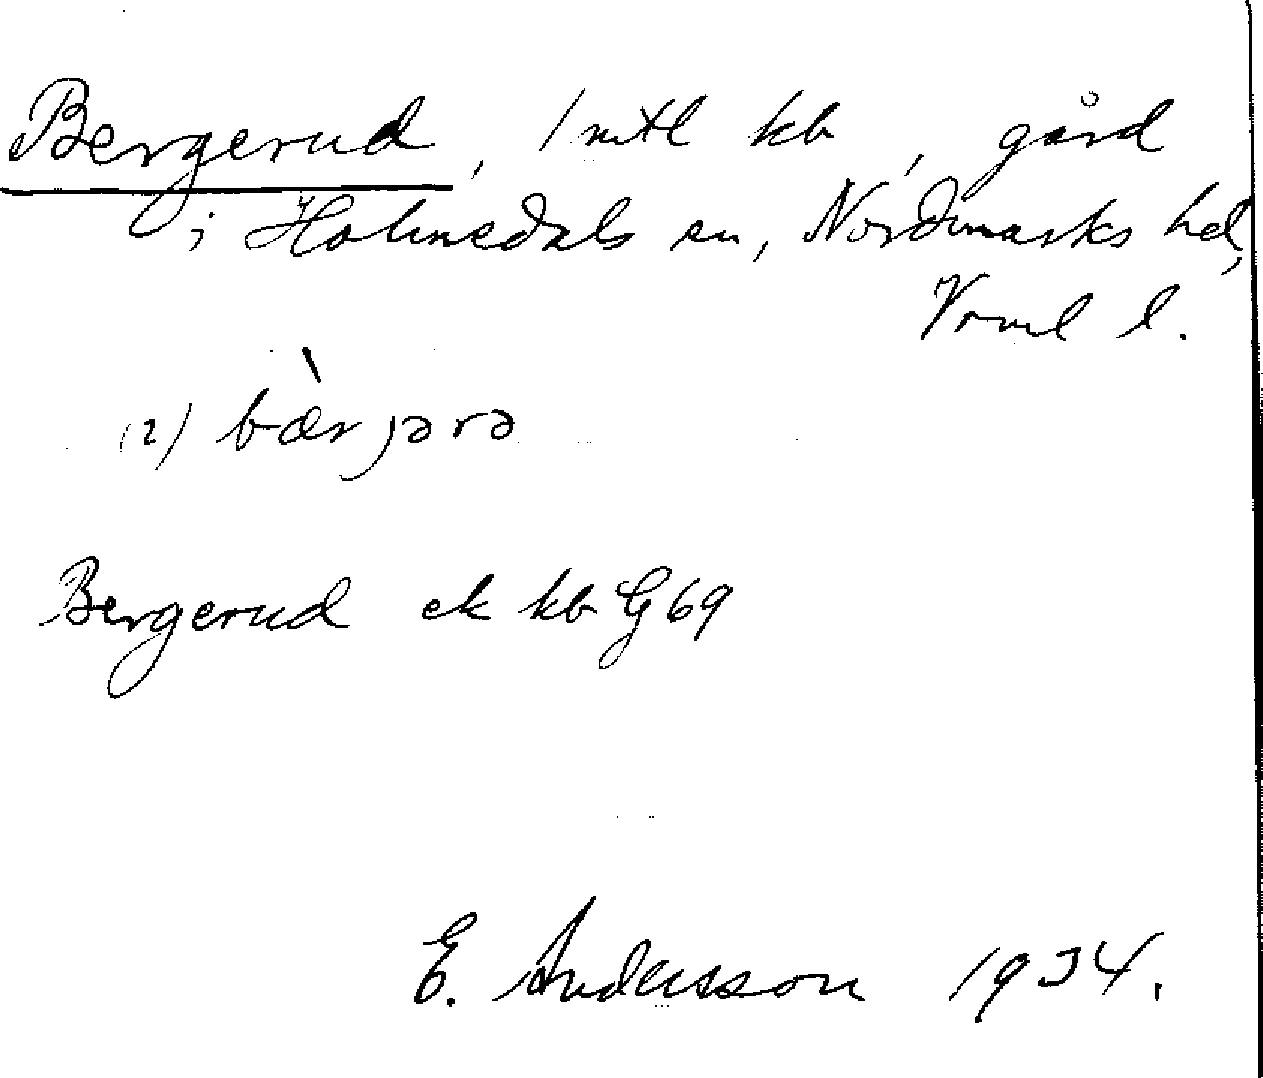 Bergerud, 1 mtl kb, gård
i Holmedals sn, Nordmarks hd,
Vrml l.
(2) bæ̀rjərə
Bergerud ek kb G 69
E. Andersson 1934.